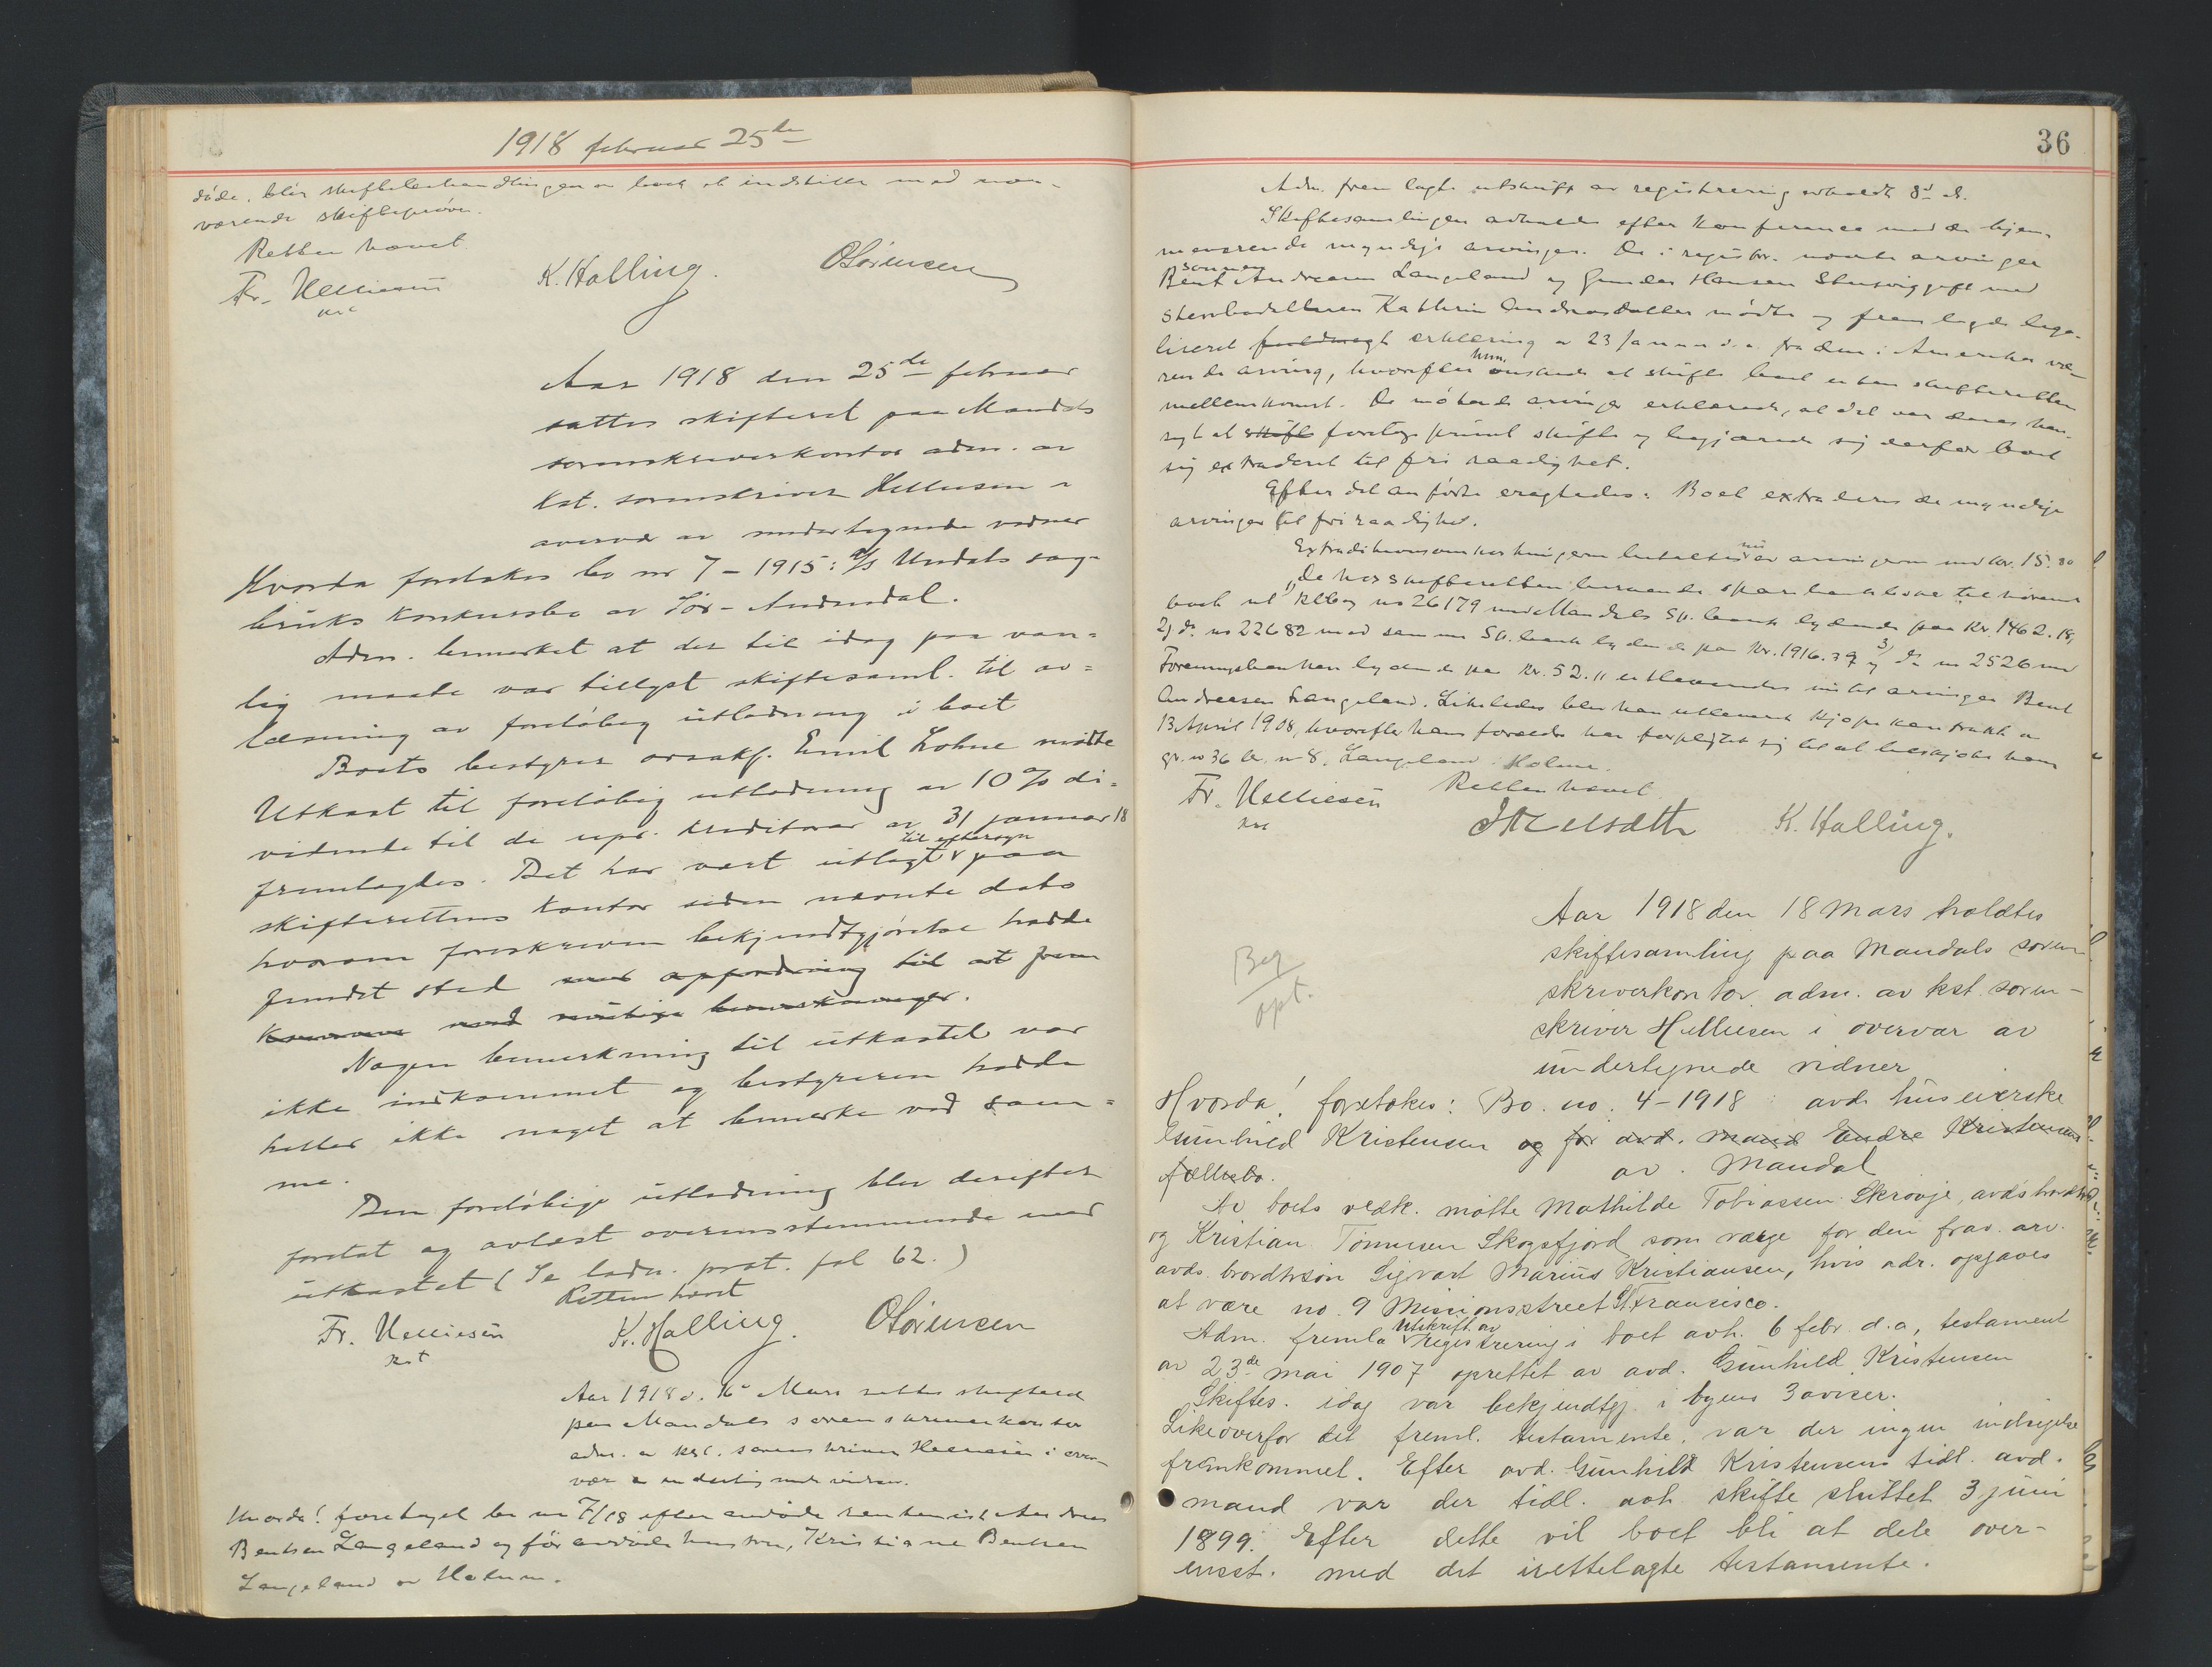 1918 februar 25de
døde. blir skiftebehandlingen av boet at indstille med nær-
værende skifteprøve.
Retten hævet
Fr. Helliesen K. Halling. O Sørensen
kst
Aar 1918 den 25de februar
sattes skifteret paa Mandals
sorenskriverkontor adm. av
kst. sorenskriver Helliesen i
overvær av undertegnede vidner
Hvorda foretokes bo nr 7 - 1915: A/S Undals sag-
bruks konkursbo av Sør-Audnedal.
Adm. bemerket at der til idag paa van-
lig maate var tillyst skiftesaml. til av-
læsning av foreløbig utlodning i boet
Boets bestyrer orsakf. Emil Lohne møtte
Utkast til foreløbig utlodning av 10 % di-
vidende til de upr. kreditorer av 31 januar 18
fremlagdes. Det har vært utlagt til eftersyn paa
skifterettens kontor siden nævnte dato
hvorom foreskreven bekjendtgjørelse hadde
fundet sted med opfordring til at frem
komme med mulige bemerkninger.
Nogen bemerkning til utkastet var
ikke indkommet og bestyreren hadde
heller ikke noget at bemerke ved sam-
me.
Den foreløbige utlodning blev derefter
foretat og avlæst overensstemmende med
utkastet (Se lodn. prot. fol 62.)
Retten hævet
Fr. Helliesen K. Halling. O Sørensen
kst
Aar 1918 d. 16 Mars sattes skifteret
paa Mandals sorenskriverkontor
adm. av kst. sorenskriver Helliesen i over-
vær av undertegnede vidner.
Hvorda! foretoges bo nr 7/18 efter avdøde Andreas
Bentsen Langeland og før avdøde hustru, Kristiane Bentsen
Langeland av Holum.
36
Adm. fremlagte utskrift av registrering avholdt 8d ds.
Skiftesamlingen avholdes efter konferance med de hjem-
meværende myndige arvinger. De i registr. nævnte arvinger
sønnen
Bent Andreasen Langeland og Gunder Hansen gift med
Stervbodatteren Kathrine Andreasdatter mødte og fremlagde lega-
liseret fuldmagt erklæring av 23 Januar d.a. fra den i Amerika væ-
rende arving, hvorefter hun ønskede at skifte boet uten skifterettens
mellemkomst. De møtende arvinger erklærede, at det var deres hen-
sigt at skifte foretage privat skifte og begjærede sig derfor boet
sig extraderet til fri raadighet.
Efter det anførte eragtedes: Boet extraderes de myndige
arvinger til fri raadighet.
Extraditionsomkostningerne betaltes nu av arvingerne med kr. 15.80
De hos skifteretten beroende sparebankbøker tilhørende
boet nl 1) bog no 26179 med Mandals Sp. bank lydende paa Kr. 1462.18,
2) do no 22682 med samme Sp. bank lydende paa Kr. 1916.39 og 3) do no 2526 med
Foreningsbanken lydende paa Kr. 52.11 utleveredes nu til arvingen Bent
Andreasen Langeland. Likeledes blev ham utleveret kjøpekontrakt av
13 April 1908, hvorefter hans forældre har forpligtet sig til at tilskjøte ham
gr. no 36 br. nr 8. Langeland i Holme.
Retten hævet
Fr. Helliesen K. Halling.
kst
Beg.
opt.
Aar 1918 den 18 Mars holdtes
skiftesamling paa Mandals soren
skriverkontor adm. av kst. soren-
skriver Helliesen i overvær av
undertegnede vidner
Hvorda! foretokes: Bo. no. 4-1918 avd. huseierske
Gunhild Kristensen og før avd. mand Endre Kristensens
fællesbo. av. Mandal
Av boets vedk. møtte Mathilde Tobiassen Skrøvje, avd's
og Kristian Tønnesen Skogsfjord som værge for den frav. arv.
avds. brordtrsøn Sigvart Marius Kristiansen, hvis adr. opgaves
at være no. 9 Missionsstreet St. Francisco.
Adm. fremla Utskrift av registrering i boet avh. 6 febr. d.a, testament
av 23de mai 1907 oprettet av avd. Gunhild Kristensen
Skiftes. idag var bekjendtgj. i byens 3 aviser.
Likeoverfor det freml. testamente. var der ingen indsigelse
fremkommet. Efter avd. Gunhild Kristensens tidl. avd.
mand var der tidl. avh. skifte sluttet 3 juni
1899. Efter dette vil boet bli at dele over-
ensst. med det irettelagte testamente.